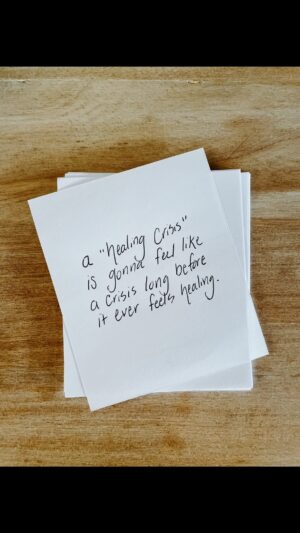 a "healing crisis"
is gonna feel like
a crisis long before
it ever feels healing.